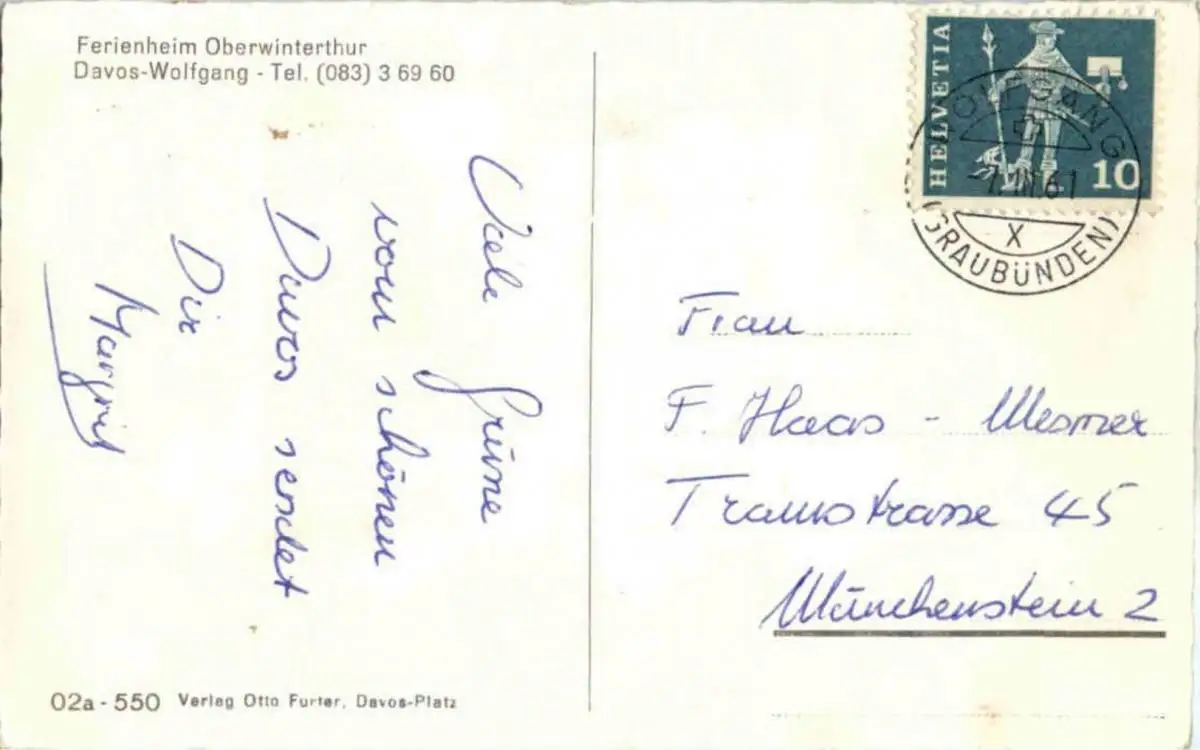 Ferienheim Oberwinterthur
Davos-Wolfgang - Tel. (083) 3 69 60
Viele Grüsse
vom schönen
Davos sendet
Dir
Margrit
02a - 550 Verlag Otto Furter, Davos-Platz
HELVETIA
10
WOLFGANG
X
(GRAUBÜNDEN)
Frau
F. Haas - Mesmer
Tramstrasse 45
Münchenstein 2